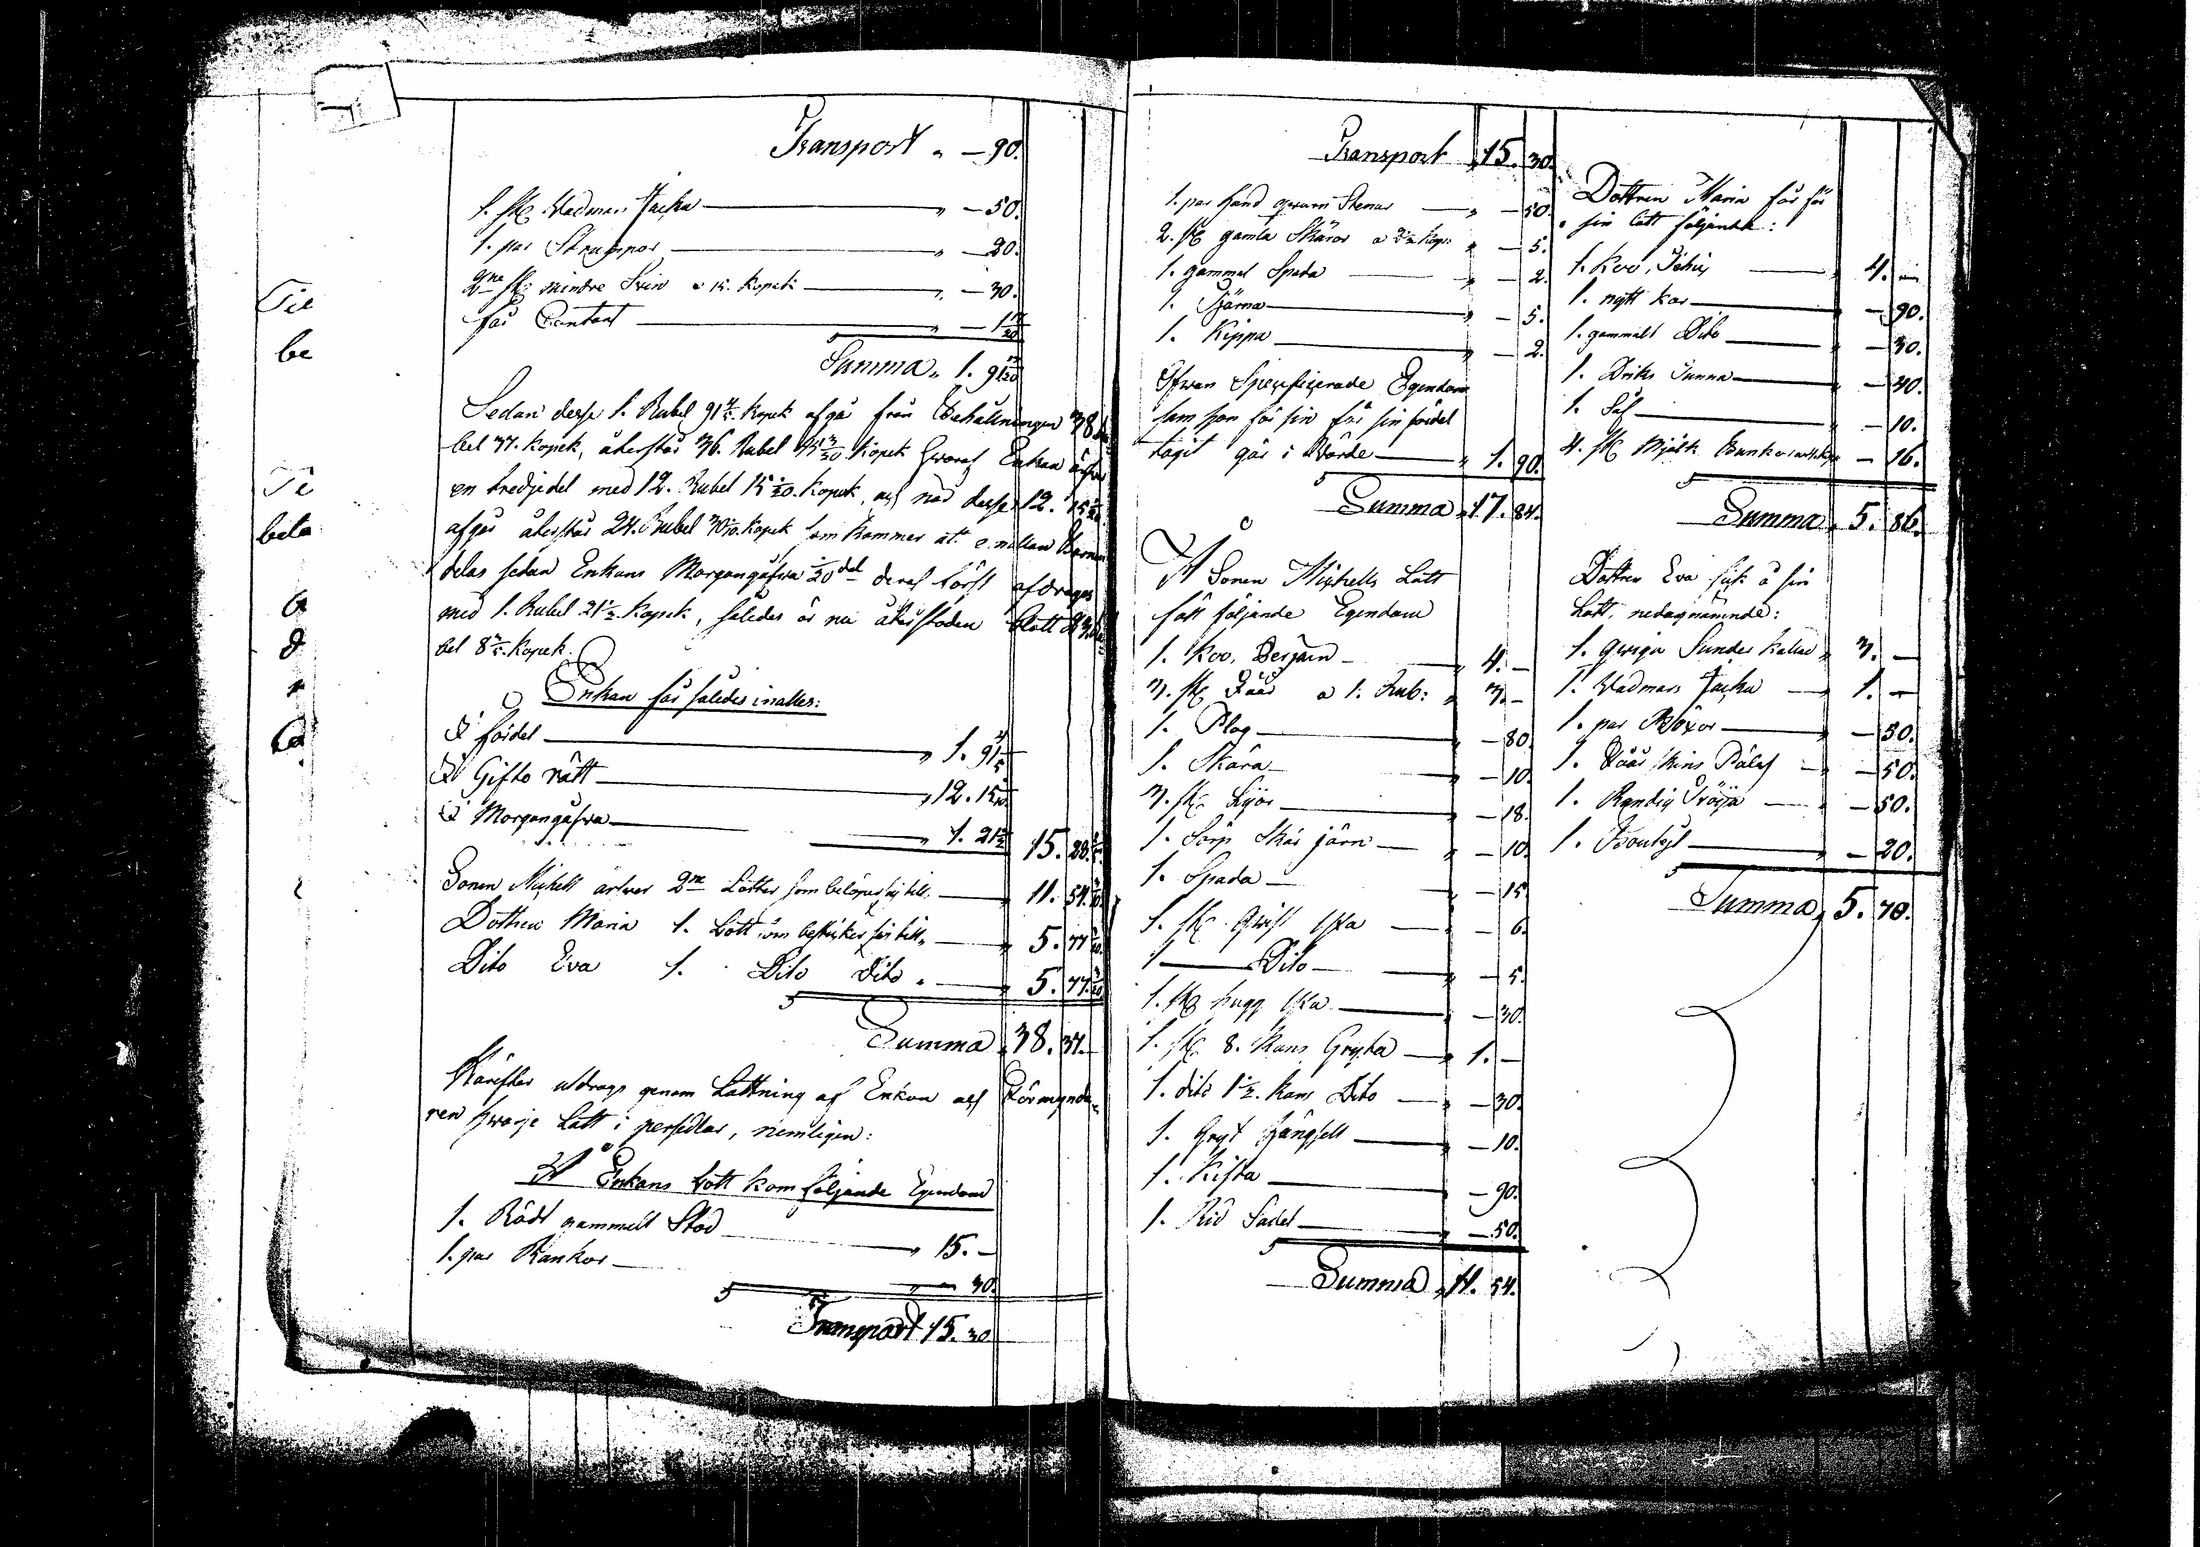 Transport „ — 90.
1. st. Wadmars Jacka „ — 50.
1. par Strumpor „ — 20.
2ne st. mindre Svin a 15. Kopek „ — 30.
får Contant „ — 1 17/20
Summa „ 1. 91
Sedan desse 1. Rubel 91 Kopek afgå från Behållningen 38 Ru
bel 37. Kopek, återstår 36. Rubel 45 Kopek hwaraf Enkan
en tredjedel med 12. Rubel 15 Kopek, och när desse 12. 15
afgår återstår 24. Rubel 30 Kopek som kommer at emellan Barnen
delas sedan Enkans Morgongåfwa 1/20 del deraf först afdrages
med 1. Rubel 21 1/2 Kopek, således är nu återstoden blott 23 Ru
bel 8 Kopek.
Enkan får således inalles:
I fördel „ 1. 91
I Gifto rätt „ 12. 15
I Morgongåfwa „ 1. 21 1/2 15. 28
Sonen Michell ärfwer 2ne Lotter som belöper sig till „ 11. 54
Dottren Maria 1. Lott som bestiger sig till „ 5. 77
Dito Eva 1. Dito Dito „ 5. 77
Summa „ 38. 37.
Härefter utdrogs genom Lottning af Enkan och Förmynda-
ren hwarje Lott i persedlar, nemligen:
På Enkans Lott kom följande Egendom
1. Rödt gammelt Stod „ 15. —
1. par Rankor „ — 30.
Transport 15. 30
Transport „ 15. 30
1. par Hand qwarn Stenar „ — 50
2. st. gamla Skäror a 2 1/2 Kop: „ — 5.
1. gammal Spada „ — 2.
1. Tjärna „ — 5.
1. Kippa „ — 2.
Ofwan Specificerade Egendom
som hon för sin för sin fördel
tagit går i Wärde „ 1. 90.
Summa „ 17. 84.
På Sonen Michells Lott
föll följande Egendom
1. Koo, Derjarn „ 4. —
3. st. Fåår a 1. Rub: „ 3. —
1. Plog „ — 80.
1. Skära „ — 10.
3. st. Lijor „ — 18.
1. Sörp Skär järn „ — 10.
1. Spada „ — 15
1. st. Qwist Yxa „ — 6.
1 Dito „ — 5.
1. st. hugg Yxa „ — 30.
1. st. 8. Kans Gryta „ 1. —
1. dito 1 1/2. Kans Dito „ — 30.
1. Gryt Hängsell „ — 10.
1. Kista „ — 90.
1. Rid Sadel „ — 50.
Summa „ 11. 54.
Dottren Maria får för
sin lott följande:
1. Koo, „ 4. —
1. nytt kar „ — 90.
1. gammalt Dito „ — 30.
1. Driks Tunna „ — 40.
1. Såf „ — 10.
4. st. Mjölk Bunkar „ — 16.
Summa „ 5. 86.
Dottren Eva fick å sin
Lott, nedannämnde:
1. Qwiga Sunder kallad „ 3. —
1. Wadmars Jacka „ 1. —
1. par Böxor „ — 50.
1. Fåår skins Päls „ — 50.
1. Randig Tröja „ — 50.
1. „ — 20.
Summa „ 5. 70.